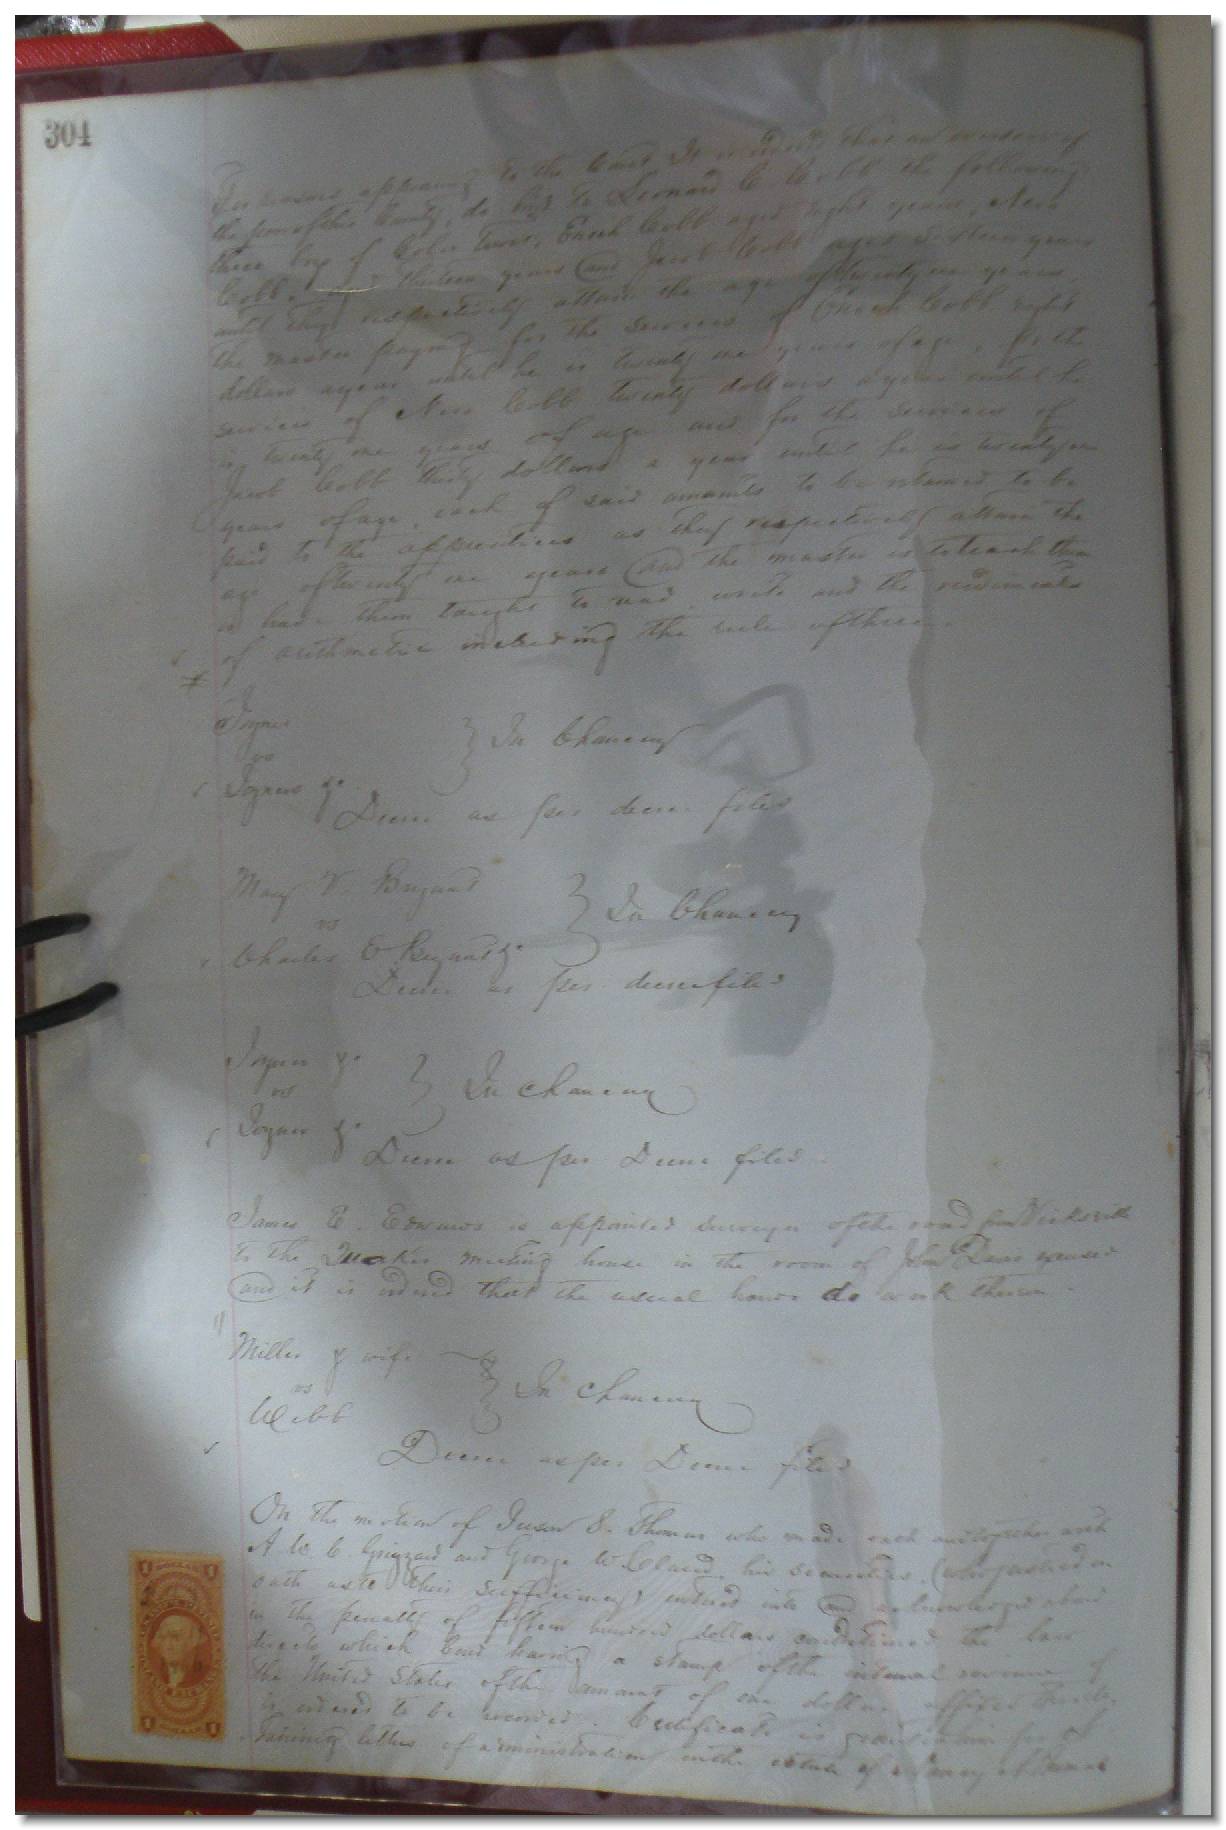 304
For reasons appearing to the Court It is ordered that an overseer of
the poor of this County, do bind to Leonard C. Cobb the following
three boys of Color towit, Enoch Cobb aged eight years, Ned
Cobb thirteen years and Jacob Cobb aged years
until they respectively attain the age of twenty one years
the master paying for the services of Enoch Cobb eight
dollars a year until he is twenty one years of age, for the
services of Ned Cobb twenty dollars a year until he
is twenty one years of age and for the services of
Jacob Cobb thirty dollars a year until he is twenty one
years of age, each of said amounts to be retained to be
paid to the apprentices as they respectively attain the
age of twenty one years and the master is to teach them
or have them taught to read, write and the rudiments
of arithmetic including the rule of three.
Joyner
vs
Joyners &c
} In Chancery
Decree as per decree filed
Mary V. Bryant
vs
Charles E Bryant &c
} In Chancery
Decree as per decree filed
Joyner &c
vs
Joyner &c
} In chancery
Decree as per Decree filed
James E. Edwards is appointed surveyor of the road from Vicksville
to the Quaker meeting house in the room of John Davis excused
and it is ordered that the usual hands do work thereon.
Miller & wife
vs
Webb
} In chancery
Decree as per Decree filed
On the motion of S. Thomas who made oath and together with
A. W. C. Grizzard and George W. Cland his securities, (who justified on
oath as to their sufficiency) entered into and acknowledged a bond
in the penalty of fifteen hundred dollars conditioned the law
directs which bond having a stamp of the internal revenue of
the United States of the amount of one dollar affixed thereto,
is ordered to be recorded. Certificate is granted him for
obtaining letters of administration on the estate of Thomas
1 DOLLAR 1
1 DOLLAR 1